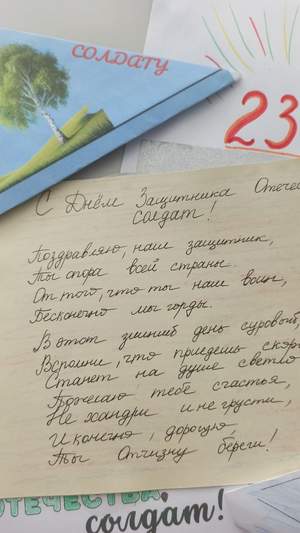 СОЛДАТУ
23
С Днём Защитника Отече
солдат!
Поздравляю, наш защитник,
Ты опора всей страны.
От того, что ты наш воин,
Бесконечно мы горды.
В этот зимний день суровый,
Вспомни, что приедешь скоро
Станет на душе светло
Пожелаю тебе счастья,
Не хандри и не грусти,
И конечно, дорогую,
Ты Отчизну береги!
ОТЕЧЕСТВА,
солдат!